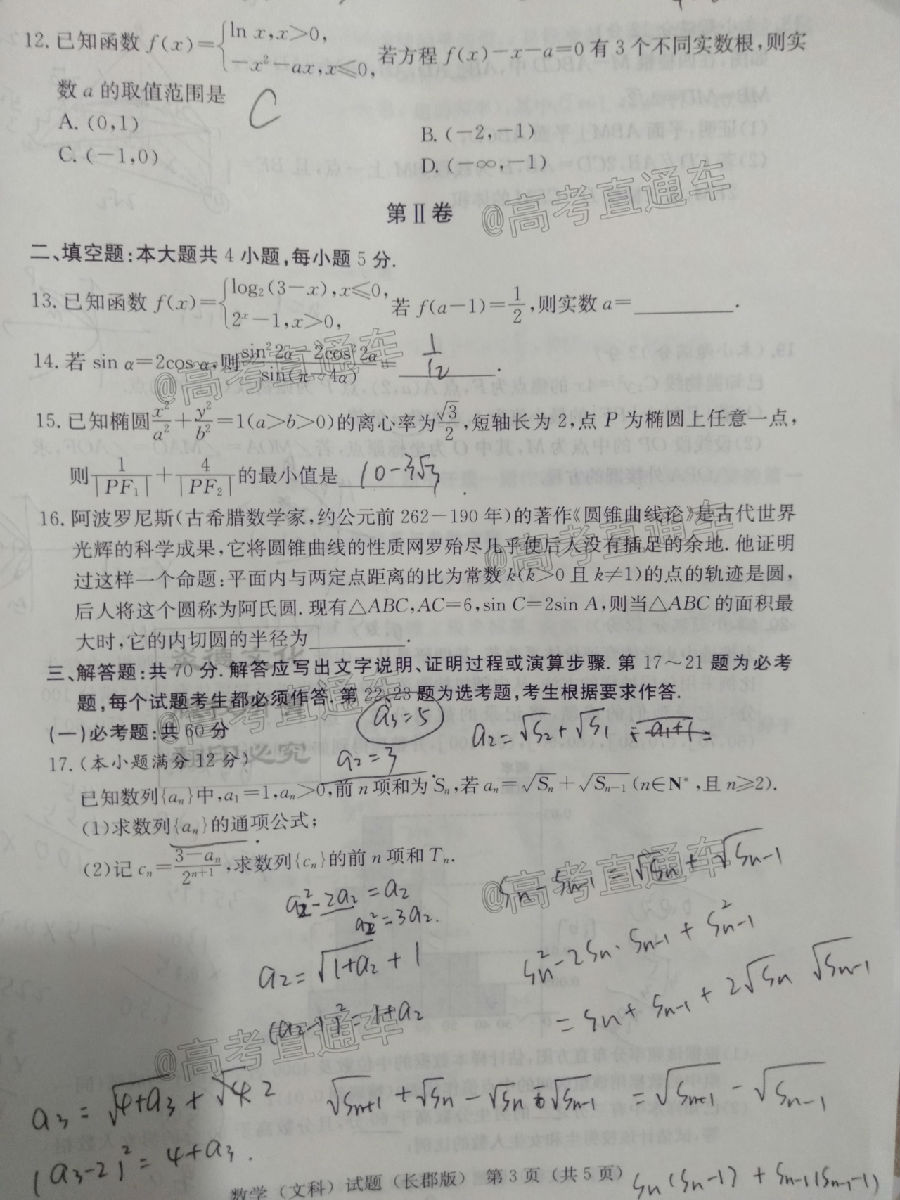 12. 已知函数 f(x)={ln x, x>0, -x²-ax, x≤0, 若方程 f(x)-x-a=0 有 3 个不同实数根,则实
数 a 的取值范围是
C
A. (0,1) B. (-2,-1)
C. (-1,0) D. (-∞,-1)
@高考直通车
第Ⅱ卷
二、填空题:本大题共 4 小题,每小题 5 分.
13. 已知函数 f(x)={log₂(3-x), x≤0, 2ˣ-1, x>0, 若 f(a-1)=1/2,则实数 a=________.
14. 若 sin α=2cos α,则 (sin²2α-2cos²2α)/sin(π-4α)= 1/12.
@高考直通车
15. 已知椭圆 x²/a²+y²/b²=1(a>b>0)的离心率为 √3/2,短轴长为 2,点 P 为椭圆上任意一点,
则 1/|PF₁|+4/|PF₂| 的最小值是
16. 阿波罗尼斯(古希腊数学家,约公元前 262-190 年)的著作《圆锥曲线论》是古代世界
光辉的科学成果,它将圆锥曲线的性质网罗殆尽几乎使后人没有插足的余地. 他证明
@高考直通车
过这样一个命题:平面内与两定点距离的比为常数 k(k>0 且 k≠1)的点的轨迹是圆,
后人将这个圆称为阿氏圆. 现有△ABC, AC=6, sin C=2sin A,则当△ABC 的面积最
大时,它的内切圆的半径为________.
三、解答题:共 70 分. 解答应写出文字说明、证明过程或演算步骤. 第 17~21 题为必考
题,每个试题考生都必须作答. 第 22、23 题为选考题,考生根据要求作答.
@高考直通车
(一)必考题:共 60 分
翻印必究
a₃=5
a₂=√S₂+√S₁
17. (本小题满分 12 分)
a₂=3
已知数列{aₙ}中,a₁=1,aₙ>0,前 n 项和为 Sₙ,若 aₙ=√Sₙ+√Sₙ₋₁ (n∈N*,且 n≥2).
(1)求数列{aₙ}的通项公式;
(2)记 cₙ=(3-aₙ)/2ⁿ⁺¹,求数列{cₙ}的前 n 项和 Tₙ.
@高考直通车
Sₙ-Sₙ₋₁=√Sₙ+√Sₙ₋₁
a₂²-2a₂=a₂
a₂²=3a₂.
a₂=√1+a₂+1
Sₙ²-2Sₙ·Sₙ₋₁+S²ₙ₋₁
(a₂-1)²=1+a₂
=Sₙ+Sₙ₋₁+2√Sₙ √Sₙ₋₁
@高考直通车
a₃=√4+a₃+√4
√Sₙ₊₁+√Sₙ-√Sₙ √Sₙ₋₁ =√Sₙ₊₁-√Sₙ₋₁
(a₃-2)²=4+a₃.
数学(文科)试题(长郡版) 第 3 页(共 5 页)